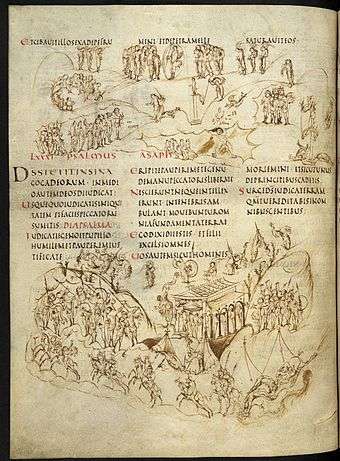 ETCIBAVITILLOSEXADIPEFRU MENTI ETDEPETRAMELLE SATURAVITEOS
LXXXI PSALMUS ASAPH
DS STETIT IN SINA
GOGA DEORUM IN MEDI
O AUTEM DEOS DIIUDICAT
USQUEQUO IUDICATIS INIQUI
TATEM ET FACIES PECCATORUM
SUMITIS DIAPSALMA
IUDICATE EGENO ET PUPILLO
HUMILEM ET PAUPEREM IUS
TIFICATE
ERIPITE PAUPEREM ET EGENU
DE MANU PECCATORIS LIBERATE
NESCIERUNT NEQUE INTELLEX
ERUNT IN TENEBRIS AM
BULANT MOVEBUNTUR OM
NIA FUNDAMENTA TERRAE
EGO DIXI DII ESTIS ET FILII
EXCELSI OMNES
UOS AUTEM SICUT HOMINES
MORIEMINI ET SICUT UNUS
DE PRINCIPIBUS CADITIS
SURGE DS IUDICA TERRAM
QM TU HEREDITABIS IN OM
NIBUS GENTIBUS